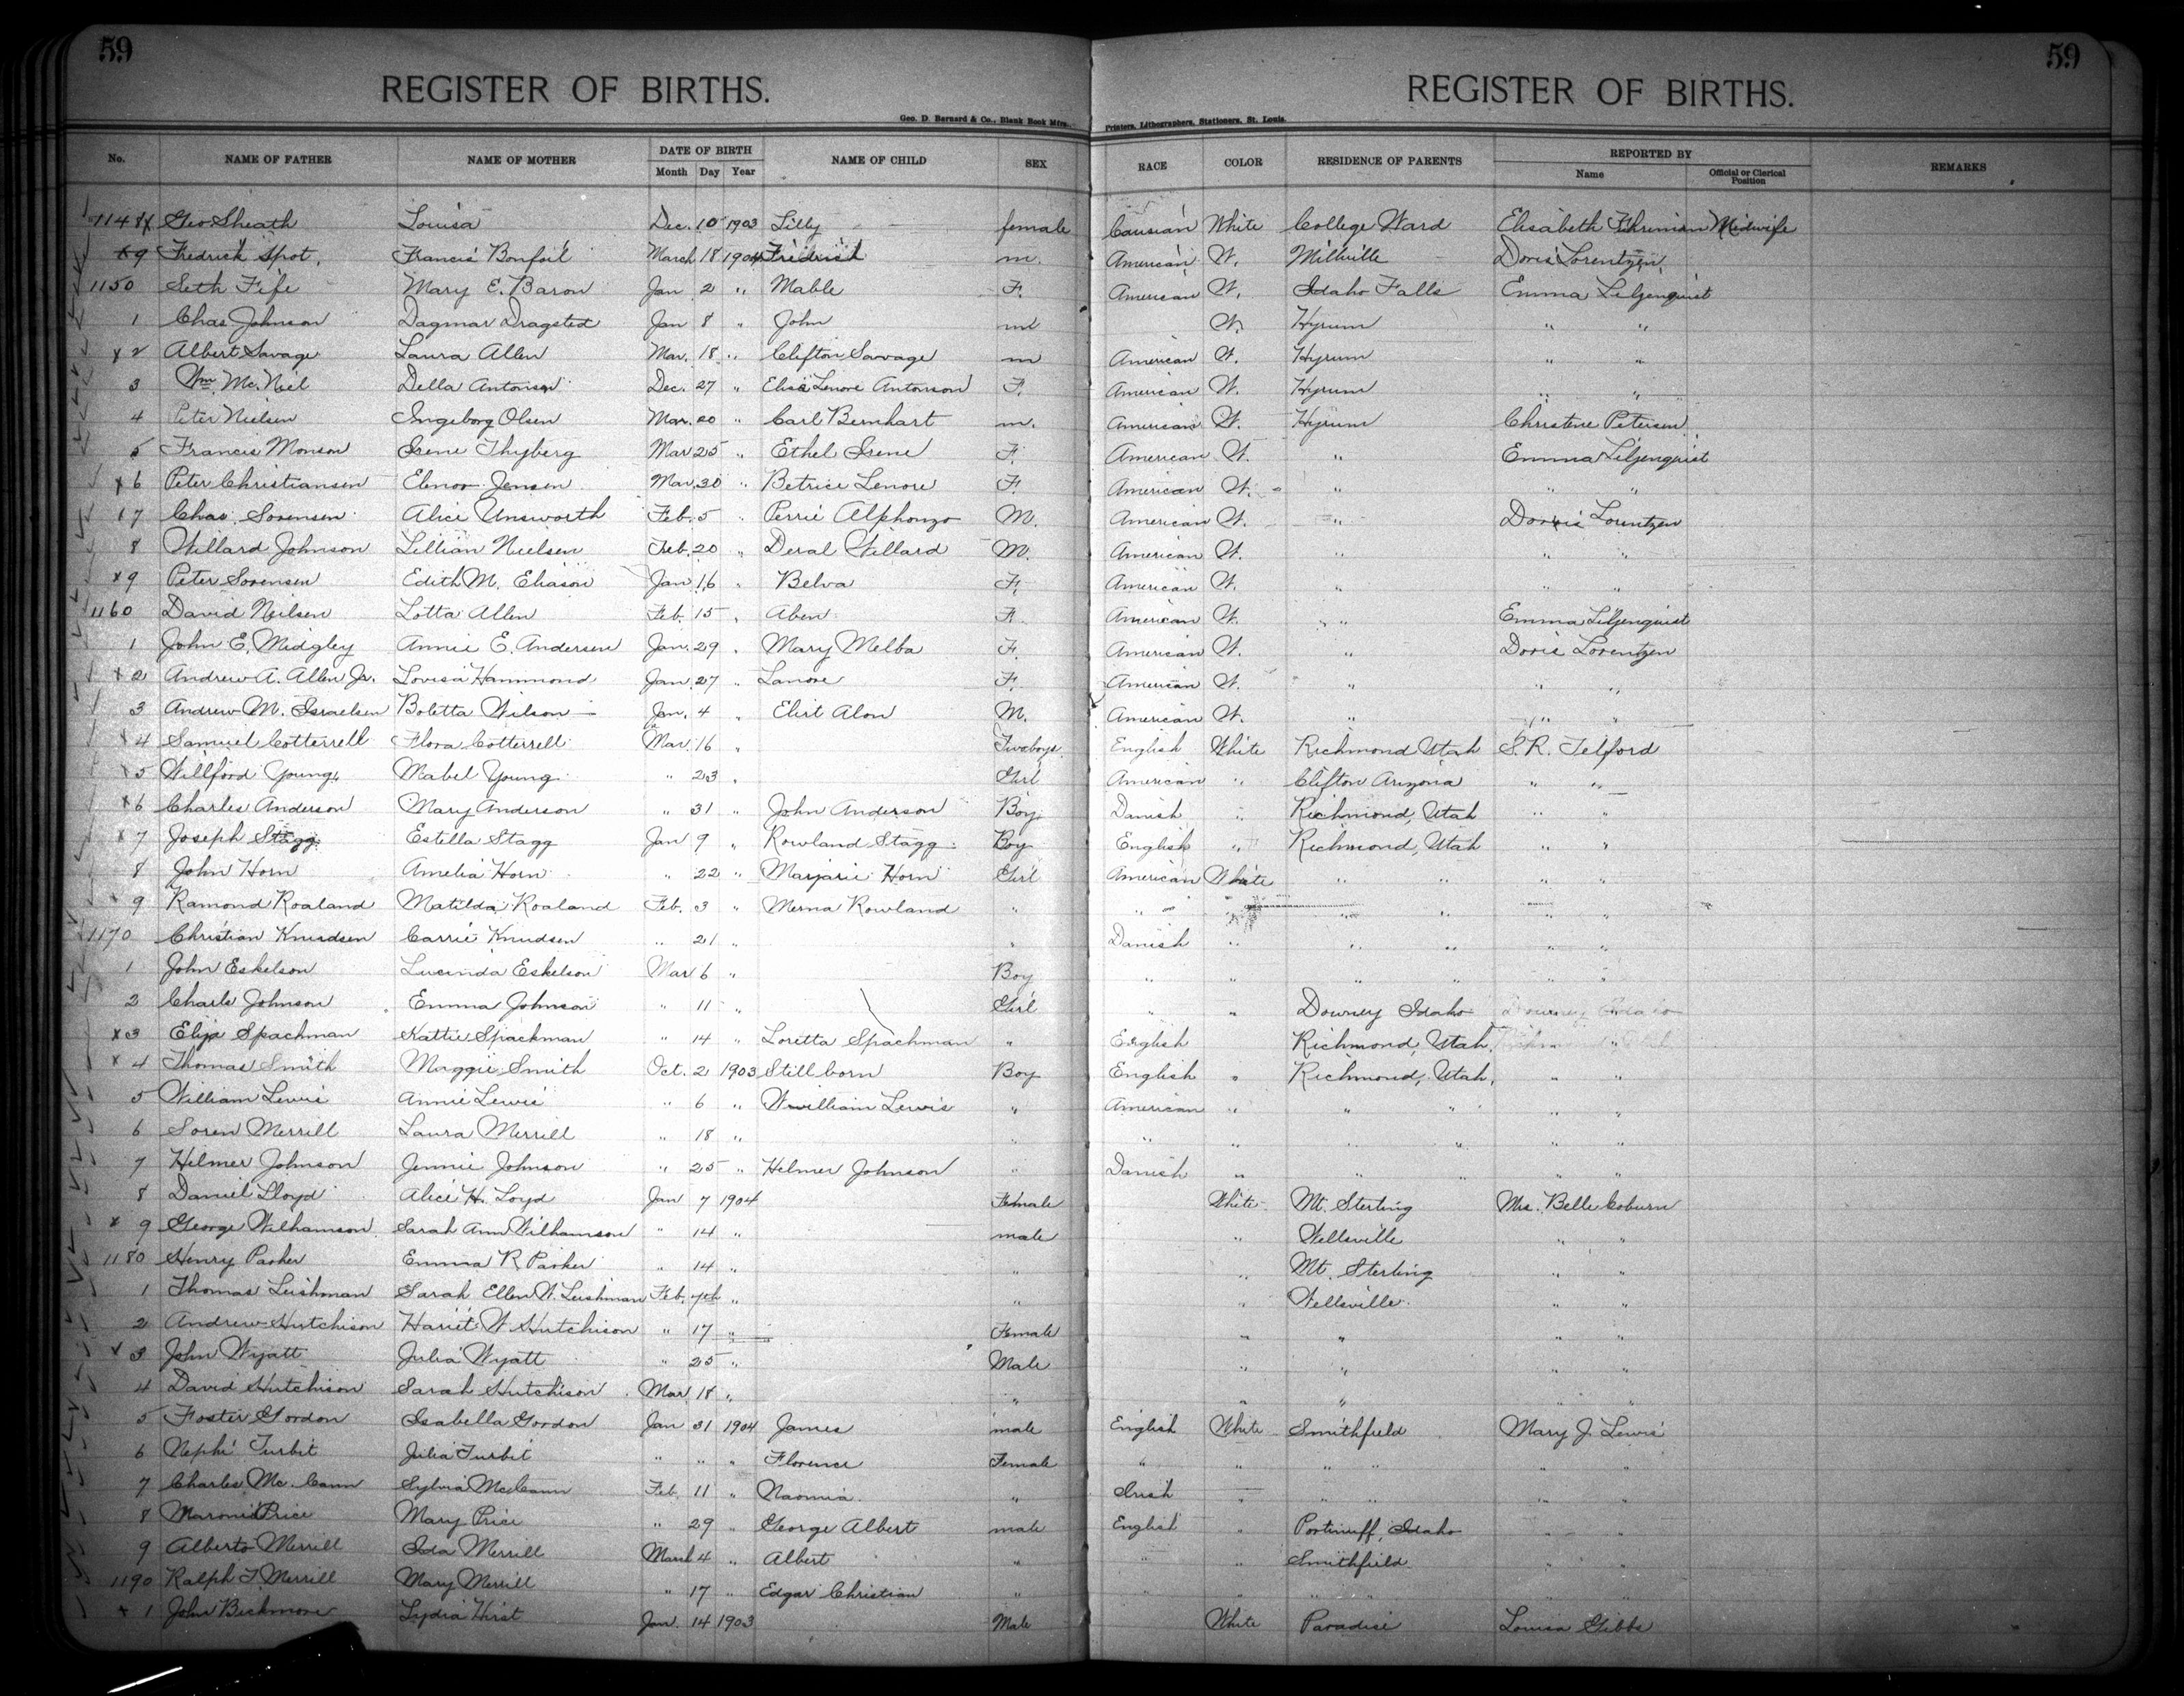 59 59
REGISTER OF BIRTHS. REGISTER OF BIRTHS.
Geo. D. Barnard & Co., Blank Book Mfrs., Printers, Lithographers, Stationers, St. Louis.
No. NAME OF FATHER NAME OF MOTHER DATE OF BIRTH Month Day Year NAME OF CHILD SEX RACE COLOR RESIDENCE OF PARENTS REPORTED BY Name Official or Clerical Position REMARKS
1148 Geo Sheath Louisa Dec. 10 1903 Lilly female Causian White College Ward Elisabeth Midwife
x9 Fredrick Spot. Francis March 18 1904 Fredrick m. American W. Millville Doris Lorentzen
1150 Seth Fife Mary E. Baron Jan 2 " Mable F. American W. Idaho Falls Emma Liljenquist
1 Chas Johnson Dagmar Dragsted Jan 8 " John m W. Hyrum " "
x2 Albert Savage Laura Allen Mar. 18 " Clifton Savage m American W. Hyrum " "
3 Wm. Mc. Niel Della Antonson Dec. 27 " Lenore Antonson F. American W. Hyrum " "
4 Peter Nielsen Ingeborg Olsen Mar. 20 " Carl Bernhart m. American W. Hyrum Christene Petersen
5 Francis Monson Irene Thyberg Mar 25 " Ethel Irene F. American W. " Emma Liljenquist
x6 Peter Christiansen Elenor Jensen Mar. 30 " Betrice Lenore F. American W. " " "
17 Chas. Sorensen Alice Unsworth Feb. 5 " Perrie Alphonzo M. American W. " Dorris Lorentzen
8 Willard Johnson Lillian Nielsen Feb. 20 " Deral Willard M. American W. " " "
x9 Peter Sorensen Edith M. Eliason Jan 16 " Belva F. American W. " " "
1160 David Neilsen Lotta Allen Feb. 15 " Aben F. American W. " " Emma Liljenquist
1 John E. Midgley Annie E. Andersen Jan. 29 " Mary Melba F. American W. " Doris Lorentzen
x2 Andrew A. Allen Jr. Lovisa Hammond Jan. 27 " Lanore F. American W. " " "
3 Andrew M. Israelsen Boletta Wilson Jan. 4 " Elist Alon M. American W. " " "
x4 Samuel Cotterrell Flora Cotterrell Mar. 16 " Two boys English White Richmond Utah S. R. Telford
x5 Willford Young Mabel Young " 23 " Girl American " Clifton Arizona " "
x6 Charles Anderson Mary Anderson " 31 " John Anderson Boy Danish " Richmond, Utah " "
x7 Joseph Stagg Estella Stagg Jan 9 " Rowland Stagg Boy English " Richmond, Utah " "
8 John Horn Amelia Horn " 22 " Marjarie Horn Girl American White " " " "
x9 Ramond Roaland Matilda Roaland Feb. 3 " Merna Rowland " " " " " " "
1170 Christian Knudsen Carrie Knudsen " 21 " " Danish " " " " "
1 John Eskelson Lucinda Eskelson Mar 6 " Boy " " " " " "
2 Charls Johnson Emma Johnson " 11 " Girl " " Downey Idaho Downey Idaho
x3 Elija Spachman Kattie Spackman " 14 " Loretta Spachman " English Richmond, Utah. "
x4 Thomas Smith Maggie Smith Oct. 2 1903 Still born Boy English " Richmond, Utah. " "
5 William Lewis Annie Lewis " 6 " Wwilliam Lewis " American " " " " "
6 Soren Merrill Laura Merrill " 18 " " " " " " "
7 Hilmer Johnson Jennie Johnson " 25 " Helmer Johnson " Danish " " " " "
8 Daniel Lloyd Alice H. Loyd Jan 7 1904 Female White Mt. Sterling Mrs. Belle Coburn
x9 George Wilhamson Sarah Ann Wilhamson " 14 " male " Wellsville " "
1180 Henry Parker Emma R Parker " 14 " " " Mt. Sterling " "
1 Thomas Leishman Sarah Ellen W. Leishman Feb. 7th " " " Wellsville " "
2 Andrew Hutchison Hariet W Hutchison " 17 " Female " " " "
x3 John Wyatt Julia Wyatt " 25 " Male " " " "
4 David Hutchison Sarah Hutchison Mar 18 " " " " " "
5 Foster Gordon Isabella Gordon Jan 31 1904 James male English White Smithfield Mary J. Lewis
6 Nephi Turbit Julia Turbit " " " Florence Female " " " " " "
7 Charles Mc. Cann Sylvia McCann Feb. 11 " Naomia " Irish " " " " "
8 Maroni Price Mary Price " 29 " George Albert male English " Portinuff, Idaho " "
9 Alberto Merrill Ida Merrill March 4 " Albert " " " Smithfield " "
1190 Ralph T Merrill Mary Merrill " 17 " Edgar Christian " " " " " " "
x1 John Bickmore Lydia Hirst Jan. 14 1903 Male White Paradise Louisa Gibbs